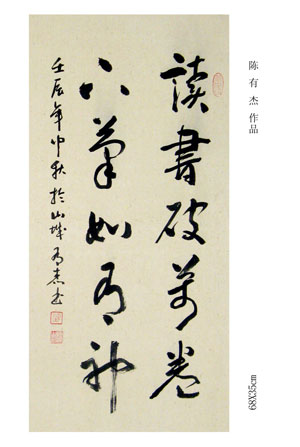 讀書破萬卷
下筆如有神
壬辰年中秋於山城有杰書
陈有杰作品
68X35cm